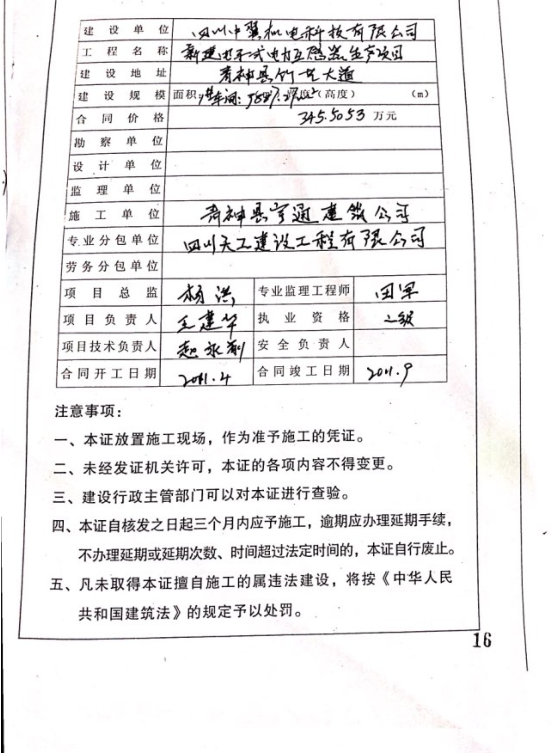 建设单位 四川中翼机电科技有限公司
工程名称 新建电子式电力互感器生产项目
建设地址 青神县竹艺大道
建设规模 面积 车间: (高度) (m)
合同价格 345.5053 万元
勘察单位
设计单位
监理单位
施工单位 青神县宇通建筑公司
专业分包单位 四川天工建设工程有限公司
劳务分包单位
项目总监 杨洪 专业监理工程师 田军
项目负责人 王建华 执业资格 二级
项目技术负责人 赵永刚 安全负责人
合同开工日期 2011.4 合同竣工日期 2011.9
注意事项:
一、本证放置施工现场，作为准予施工的凭证。
二、未经发证机关许可，本证的各项内容不得变更。
三、建设行政主管部门可以对本证进行查验。
四、本证自核发之日起三个月内应予施工，逾期应办理延期手续，
不办理延期或延期次数、时间超过法定时间的，本证自行废止。
五、凡未取得本证擅自施工的属违法建设，将按《中华人民
共和国建筑法》的规定予以处罚。
16